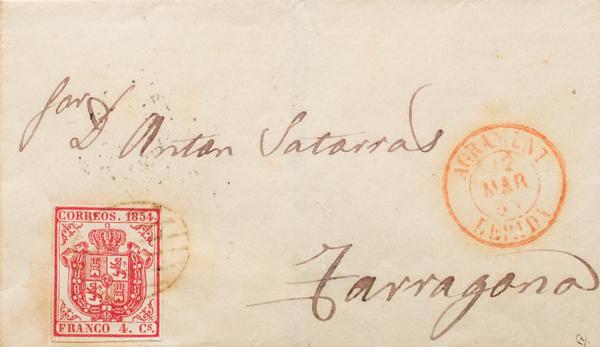 Sor
D Anton Satorras
AGRAMUNT
12
MAR
LERIDA
CORREOS. 1854.
FRANCO 4. Cs.
Tarragona